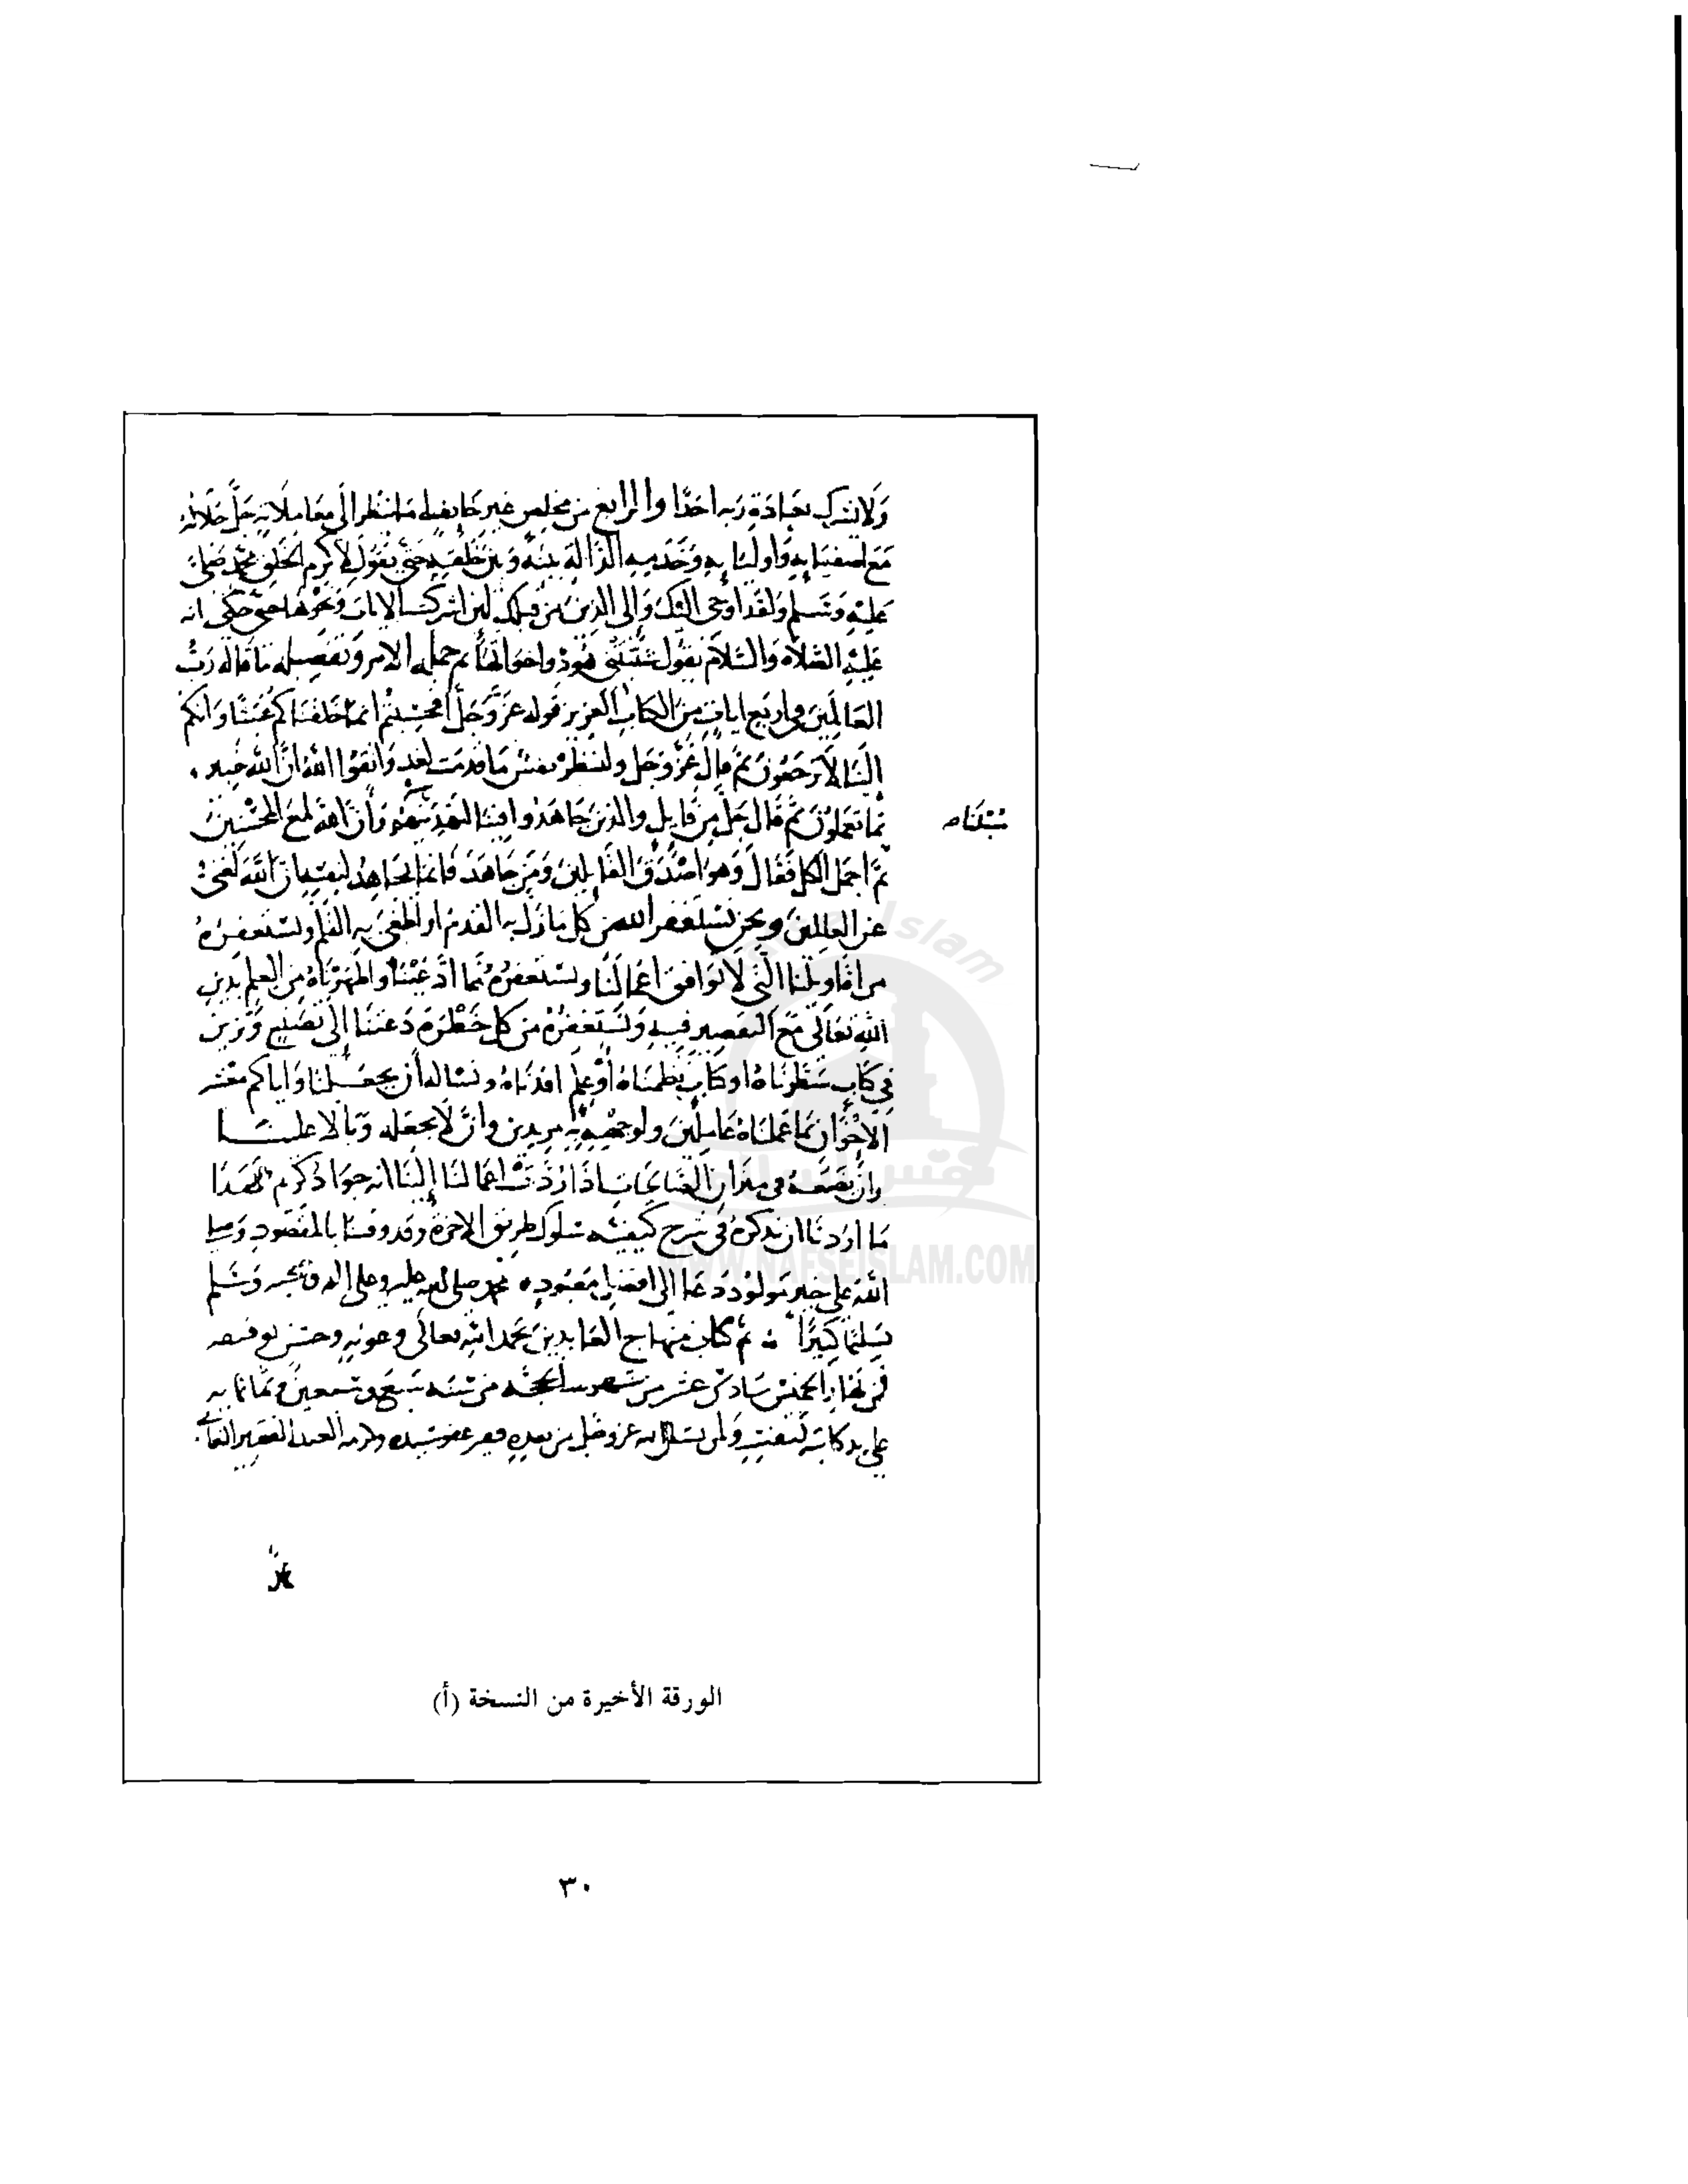 ولا يشرك بعبادة ربه احدا والرابع من مخلص غير خايف اما ينظر الى معاملاته جل جلاله
مع اصفيايه واوليايه وخدمه الدالة بينه وبين خلقه حتى يقول لاكرم الخلق محمد صلى
عليه وسلم ولقد اوحى اليك والى الذين من قبلك لين اشركت الايات ونحوها حتى حكى انه
عليه الصلاة والسلام يقول شيبتني هود واخواتها ثم جملة الامر وتفصيله ما قاله رب
العالمين في اربع ايات من الكتاب العزيز قوله عز وجل افحسبتم انما خلقناكم عبثا وانكم
الينا لا ترجعون ثم قال عز وجل ولتنظر نفس ما قدمت لغد واتقوا الله ان الله خبير
بما تعملون ثم قال جل من قايل والذين جاهدوا فينا لنهدينهم وان الله لمع المحسنين
سبلنا صح
ثم اجمل الكل فقال وهو اصدق القايلين ومن جاهد فانما يجاهد لنفسه ان الله لغني
عن العالمين ونحن نستغفر الله من كل ما زل به القدم او طغى به القلم ونستغفره
من اقاويلنا التي لا توافق اعمالنا ونستغفره مما ادعيناه واظهرناه من العلم بدين
الله تعالى مع التقصير فيه ونستغفره من كل خطرة دعتنا الى تصنع وتزين
في كتاب سطرناه او كتاب نظمناه او علم افدناه ونساله ان يجعلنا واياكم معشر
الاخوان بما علمناه عاملين ولوجهه به مريدين وان لا يجعله وبالا علينا
وان يضعه في ميزان الصالحات اذا ردت اعمالنا الينا انه جواد كريم فهذا
ما اردنا ان نذكره في شرح كيفية سلوك طريق الاخرة وقد وفينا بالمقصود وصلى
الله على خير مولود دعا الى افضل معبود محمد صلى الله عليه وعلى اله وصحبه وسلم
تسليما كثيرا تم كتاب منهاج العابدين بحمد الله تعالى وعونه وحسن توفيقه
في نهار الخميس سادس عشر من شهر الحجة من سنة سبع وتسعين وثمانمايه
على يد كاتبه لنفسه ولمن يشا الله عز وجل من بعده فقير عفو سيده وكرمه العبد الفقير
الورقة الأخيرة من النسخة (أ)
٣٠
Nafse Islam
نفس اسلام
WWW.NAFSEISLAM.COM